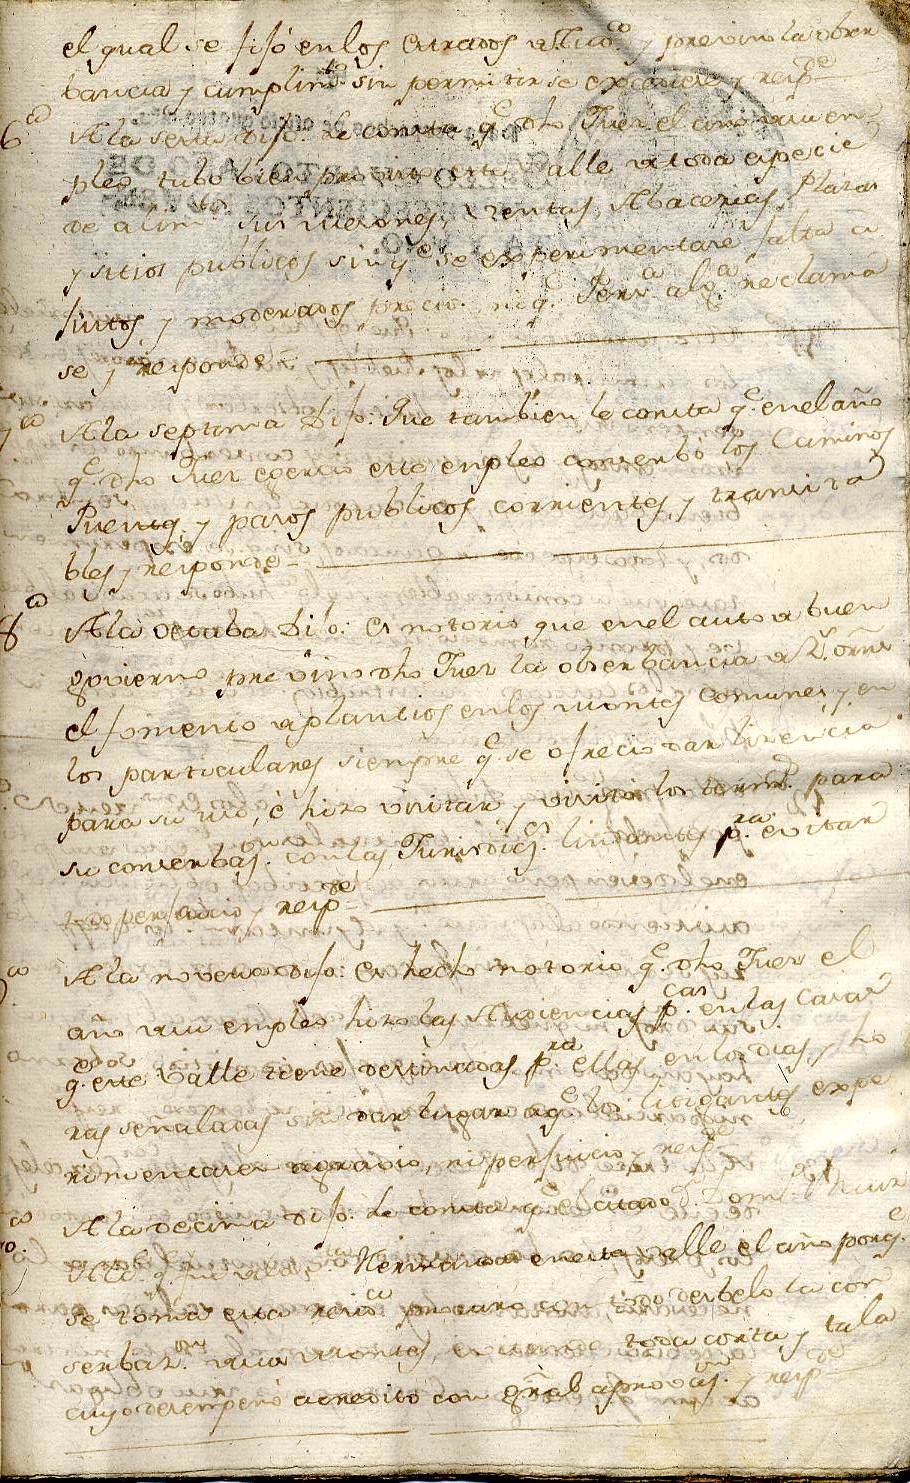 el qual se fijó en los estrados de Audᵃ y previno la obser
bancia y cumplimᵗᵒ sin permitirse excediese y respᵈᵉ
6ᵃ A la sexta Dijo: Le consta qᵉ dho Juez el año de su en
pleo tubo bien provisto este Valle de toda especie
de alimᵗᵒˢ sus mesones, Ventas, Abacerias, Plazas
y sitios publicos sin qᵉ se experimentase falta a
justos y moderados precios, ni qᵉ Persᵃ algᵃ reclama
se y responde
7ᵃ A la septima Dijo: Que tambien le consta qᵉ en el año
qᵉ dho Juez egercio este empleo conserbó los Caminos
Puentes y pasos publicos corrientes, y transita
bles y responde
8ᵃ A la octaba Dijo: Es notorio que en el auto de buen
govierno previno dho Juez la obserbancia de Rˢ. orñs
el fomento de plantios en los montes comunes y en
los particulares siempre qᵉ se ofrecio dar licencia
para su uso, é hizo visitar y visitó los termˢ. para
su conserbaⁿ. con las Jurisdicⁿᵉˢ. lindantes pʳᵃ. evitar
todo perjuicio y respᵈᵉ
9ᵃ A la novena dijo: Es hecho notorio qᵉ. dho Juez el
año de su empleo hizo las Audiencias pᶜᵃˢ. en las Casas
qᵉ este Valle tiene destinadas pʳᵃ ellas en los dias, y ho
ras señaladas sin dar lugar a qᵉ los litigantes expe
rimentasen agravio, ni perjuicio y respᵈᵉ
10ᵃ A la decima dijo: Le consta qᵉ el citado Dⁿ Domᵒ
Hermandad en este valle el año porqᵉ.
se toma esta residᵃ procuro con todo desbelo la con
serbazᵒⁿ de sus Montes, evitando toda corta y tala
cuyo desempeño acredito con gñral aprovaⁿ. y respᵈᵉ